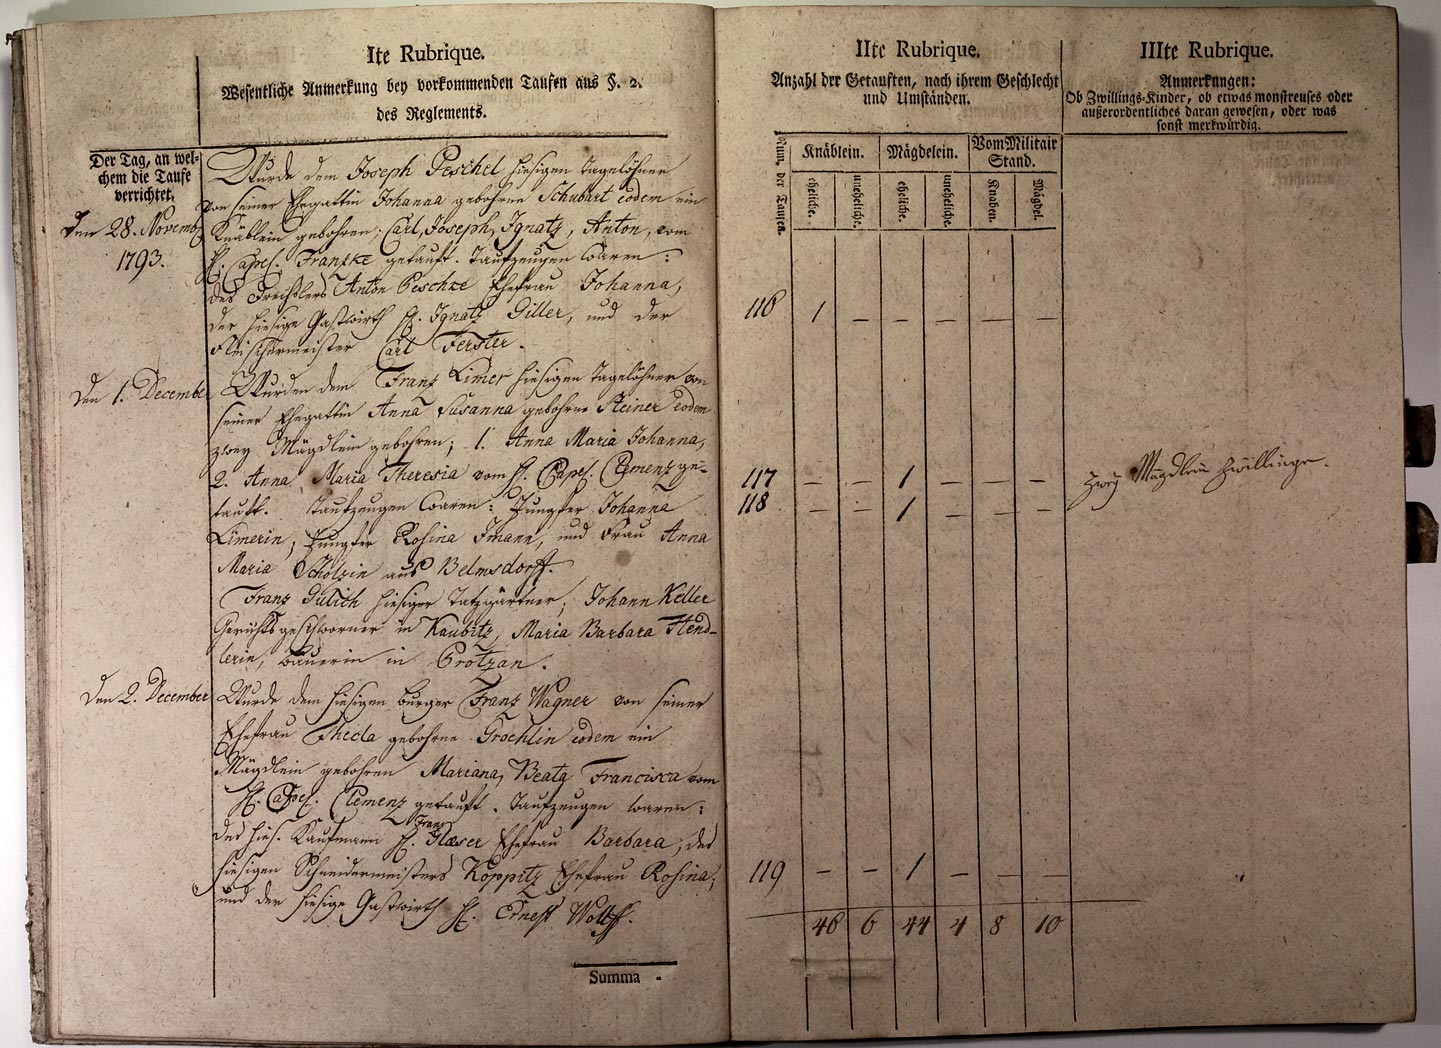 Ite Rubrique.
Wesentliche Anmerkung bey vorkommenden Taufen aus §. 2.
des Reglements.
Der Tag, an wel-
chem die Taufe
verrichtet.
Den 28. Novemb
1793.
Wurde dem Joseph Peschel hiesigen Tagelöhner
von seiner Ehegattin Johanna gebohrne Schubart eodem ein
Knäblein gebohren; Carl, Joseph, Ignatz, Anton, vom
H. Capel. Franske getauft. Taufzeugen waren:
des Anton Peschke Ehefrau Johanna,
der hiesige Gastwirth H. Ignatz Giller, und der
Fleischermeister Carl Ferster.
Den 1. December
Wurden dem Franz Limer hiesigen Tagelöhner von
seiner Ehegattin Anna Susanna gebohrne Steiner eodem
zwey Mägdlein gebohren; 1. Anna Maria Johanna,
2. Anna Maria Theresia vom H. Capel. Clemenz ge-
tauft. Taufzeugen waren: Jungfer Johanna
Limerin, Jungfer Rosina Imann, und Frau Anna
Maria Scholzin aus Belmsdorff.
Franz Gulich hiesiger; Johann Keller
Gerichtsgeschworner in Kaubitz, Maria Barbara Hend-
lerin, Bäuerin in Protzan.
Den 2. December
Wurde dem hiesigen Burger Franz Wagner von seiner
Ehefrau Thecla gebohrne Trochlin eodem ein
Mägdlein gebohren Mariana, Beata Francisca vom
H. Capel. Clemenz getauft. Taufzeugen waren:
des hies. Kaufmann H. Franz Glaeser Ehefrau Barbara; des
hiesigen Schneidermeisters Koppitz Ehefrau Rosina;
und der hiesige Gastwirth H. Ernest Wolff.
Summa
IIte Rubrique.
Anzahl der Getauften, nach ihrem Geschlecht
und Umständen.
Num. der Taufen.
Knäblein. Mägdelein. Vom Militair
Stand.
eheliche. uneheliche. eheliche. uneheliche. Knaben. Mägdel.
116 1 – – – – –
117 – – 1 – – –
118 – – 1 – – –
119 – – 1 – – –
46 6 44 4 8 10
IIIte Rubrique.
Anmerkungen:
Ob Zwillings-Kinder, ob etwas monstreuses oder
außerordentliches daran gewesen, oder was
sonst merkwürdig.
Zwey Mägdlein Zwillinge.